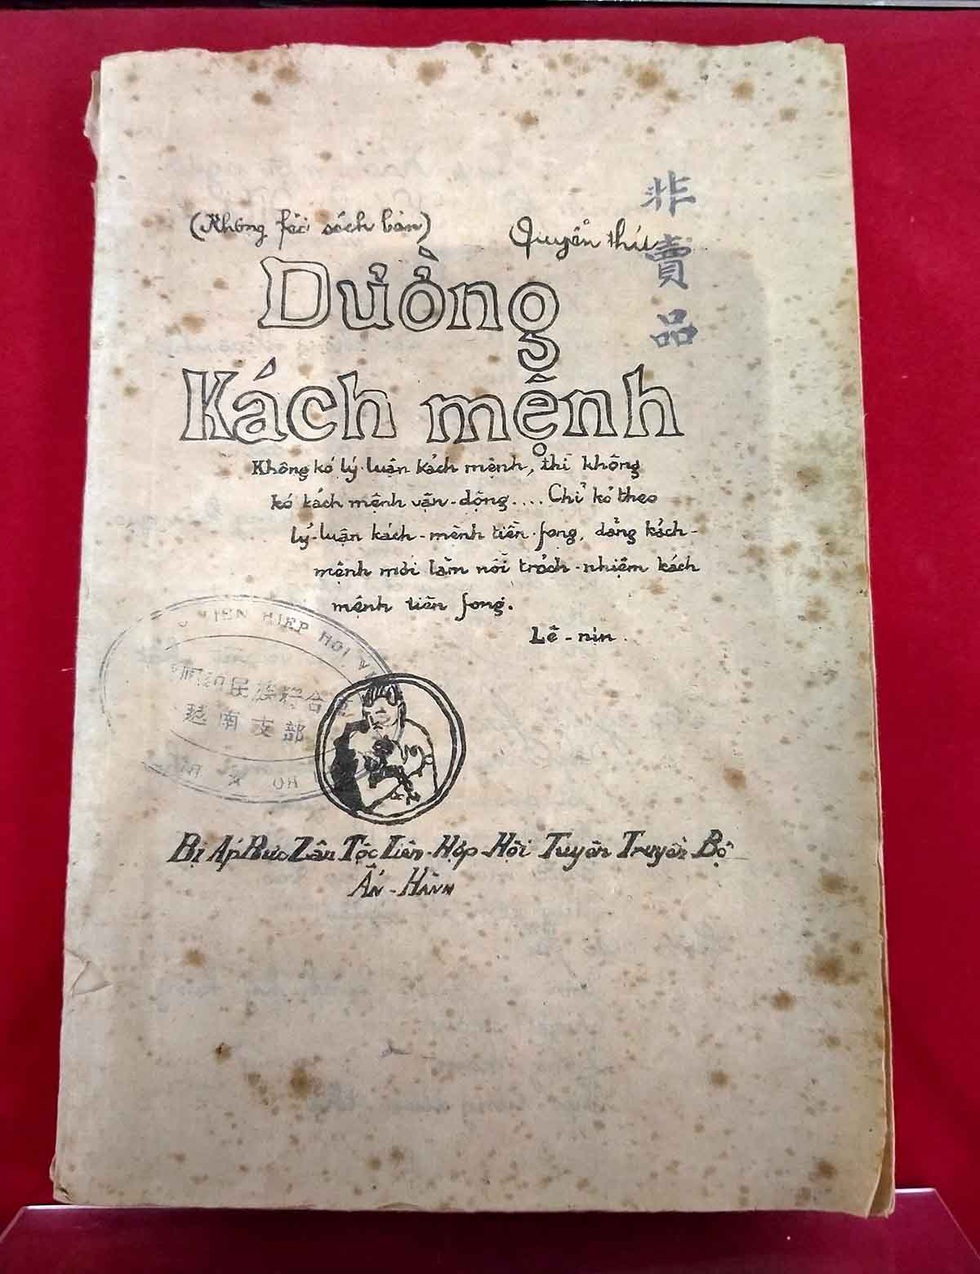 (Không fải sách bán)
Quyển thứ
非賣品
Đường
Kách mệnh
Không kó lý luận kách mệnh, thì không
kó kách mệnh vận-động.... Chỉ kó theo
lý-luận kách-mệnh tiền-fong, đảng kách-
mệnh mới làm nổi trách-nhiệm kách
mệnh tiền fong.
Lê-nin.
LIÊN HIEP HOI
民族 合
越南支部
Bị Áp Bức Zân Tộc Liên-Hợp Hội Tuyên Truyền Bộ
Ấn-Hành